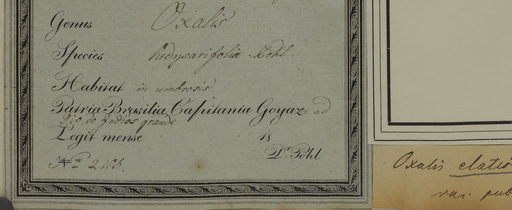 Genus Oxalis
Species hedysarifolia Pohl.
Habitat in umbrosis
Patria Brasilia, Capitania Goyaz ad
Rio dos Indios grande
Legit mense 18
Dr. Pohl
2108.
Oxalis elatio
var. pub